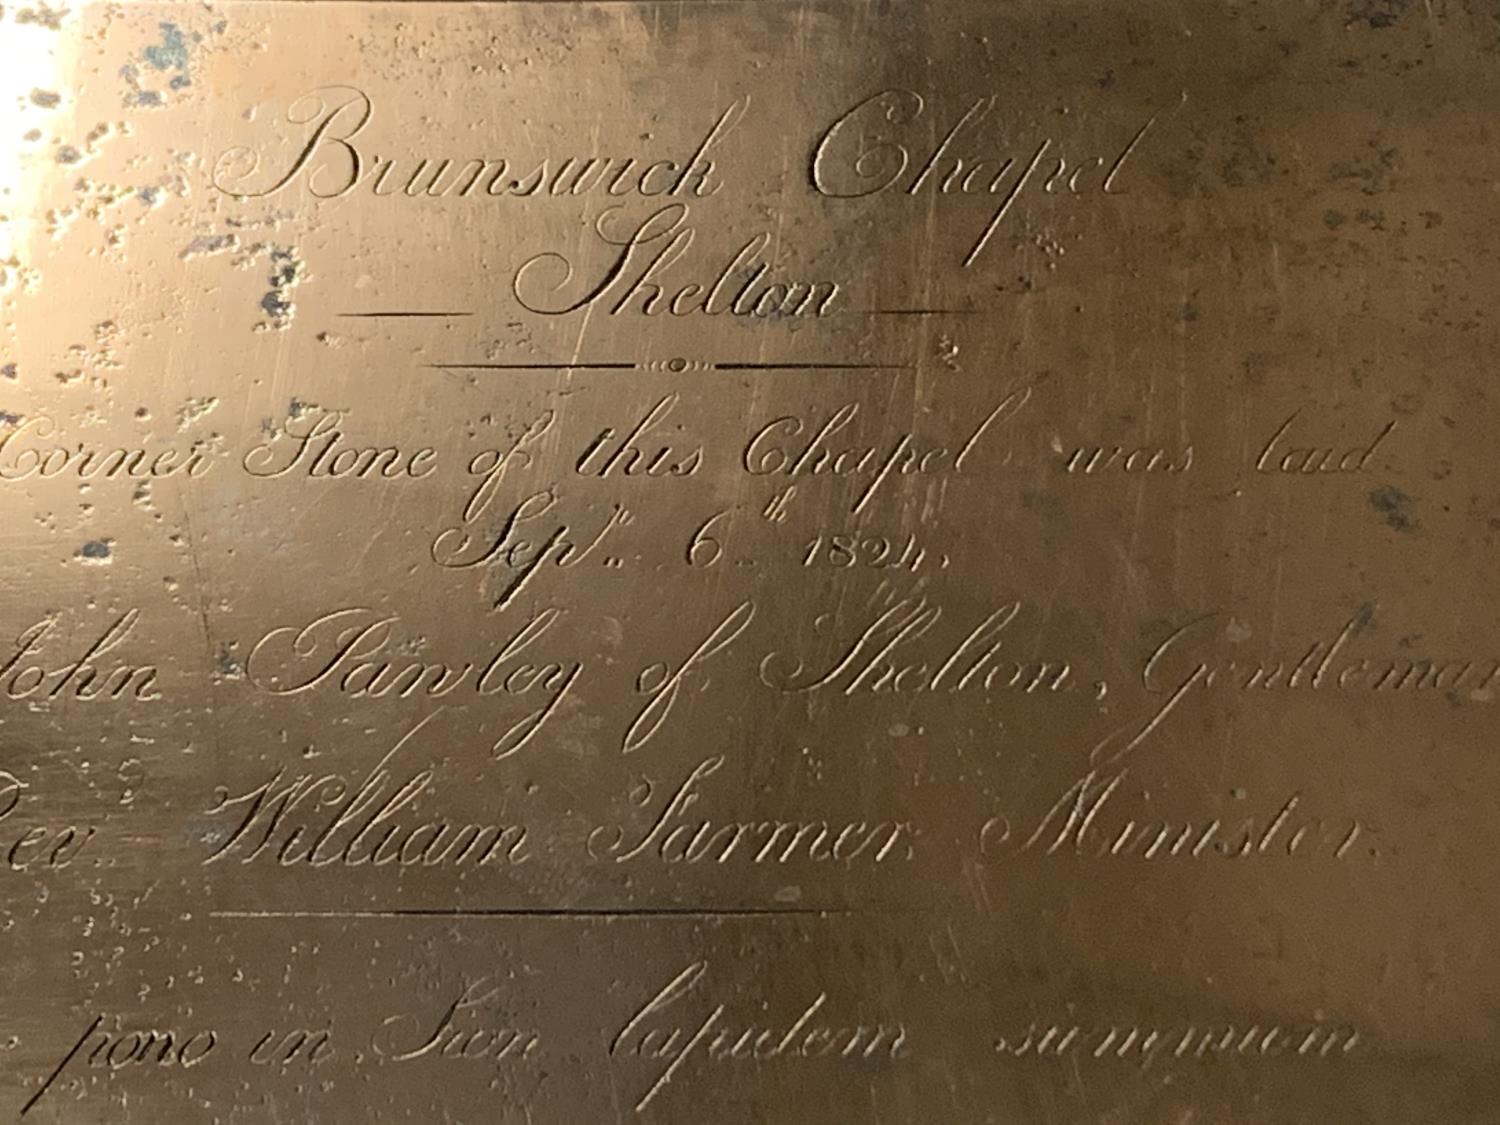 Brunswick Chapel
Shelton
Corner Stone of this Chapel was laid
Sepr. 6th 1824.
John Pawley of Shelton, Gentleman
Rev. William Farmer Minister.
pono in Sion lapidem summum